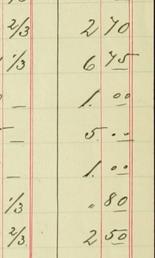 2/3 2 70
1/3 6 75
— 1. 00
— 5. 00
— 1. 00
1/3 " 80
2/3 2 50